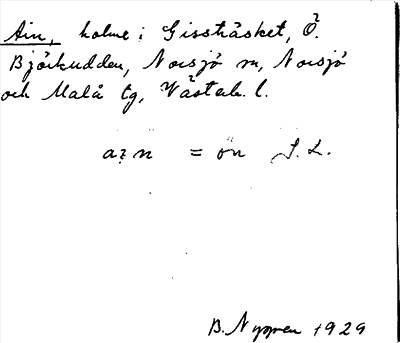 Ain, holme i Gissträsket, Ö.
Björkudden, Norsjö sn, Norsjö
och Malå tg, Västerb. l.
= ön
B. Nygren 1929